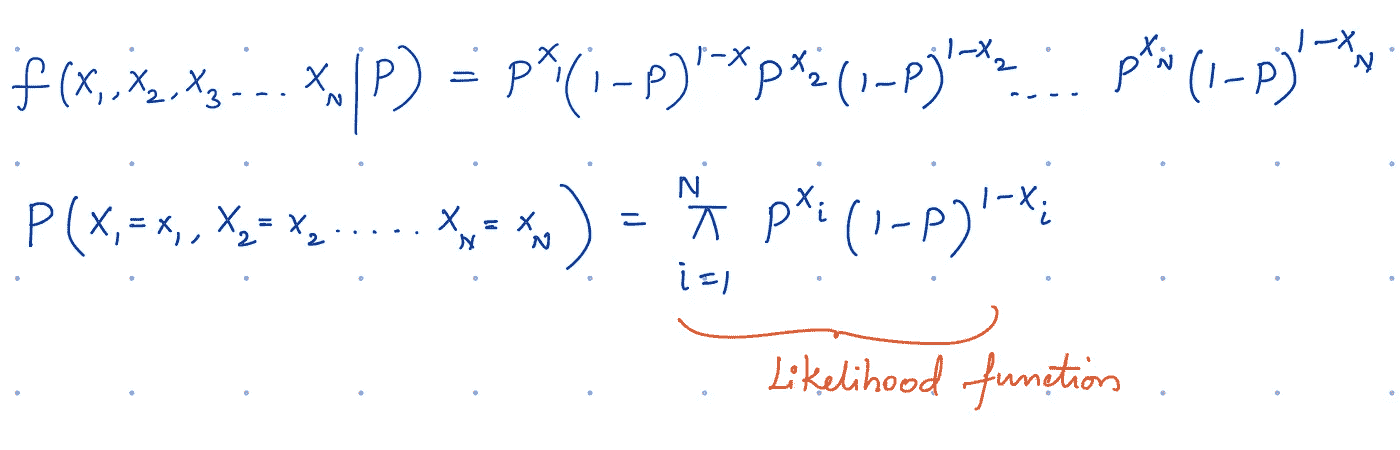 f(X₁, X₂, X₃ --- X_N | P) = P^X₁ (1-P)^1-X P^X₂ (1-P)^1-X₂ .... P^X_N (1-P)^1-X_N
P(X₁ = x₁, X₂ = x₂ ..... X_N = x_N) = N π i=1 P^X_i (1-P)^1-X_i
Likelihood function